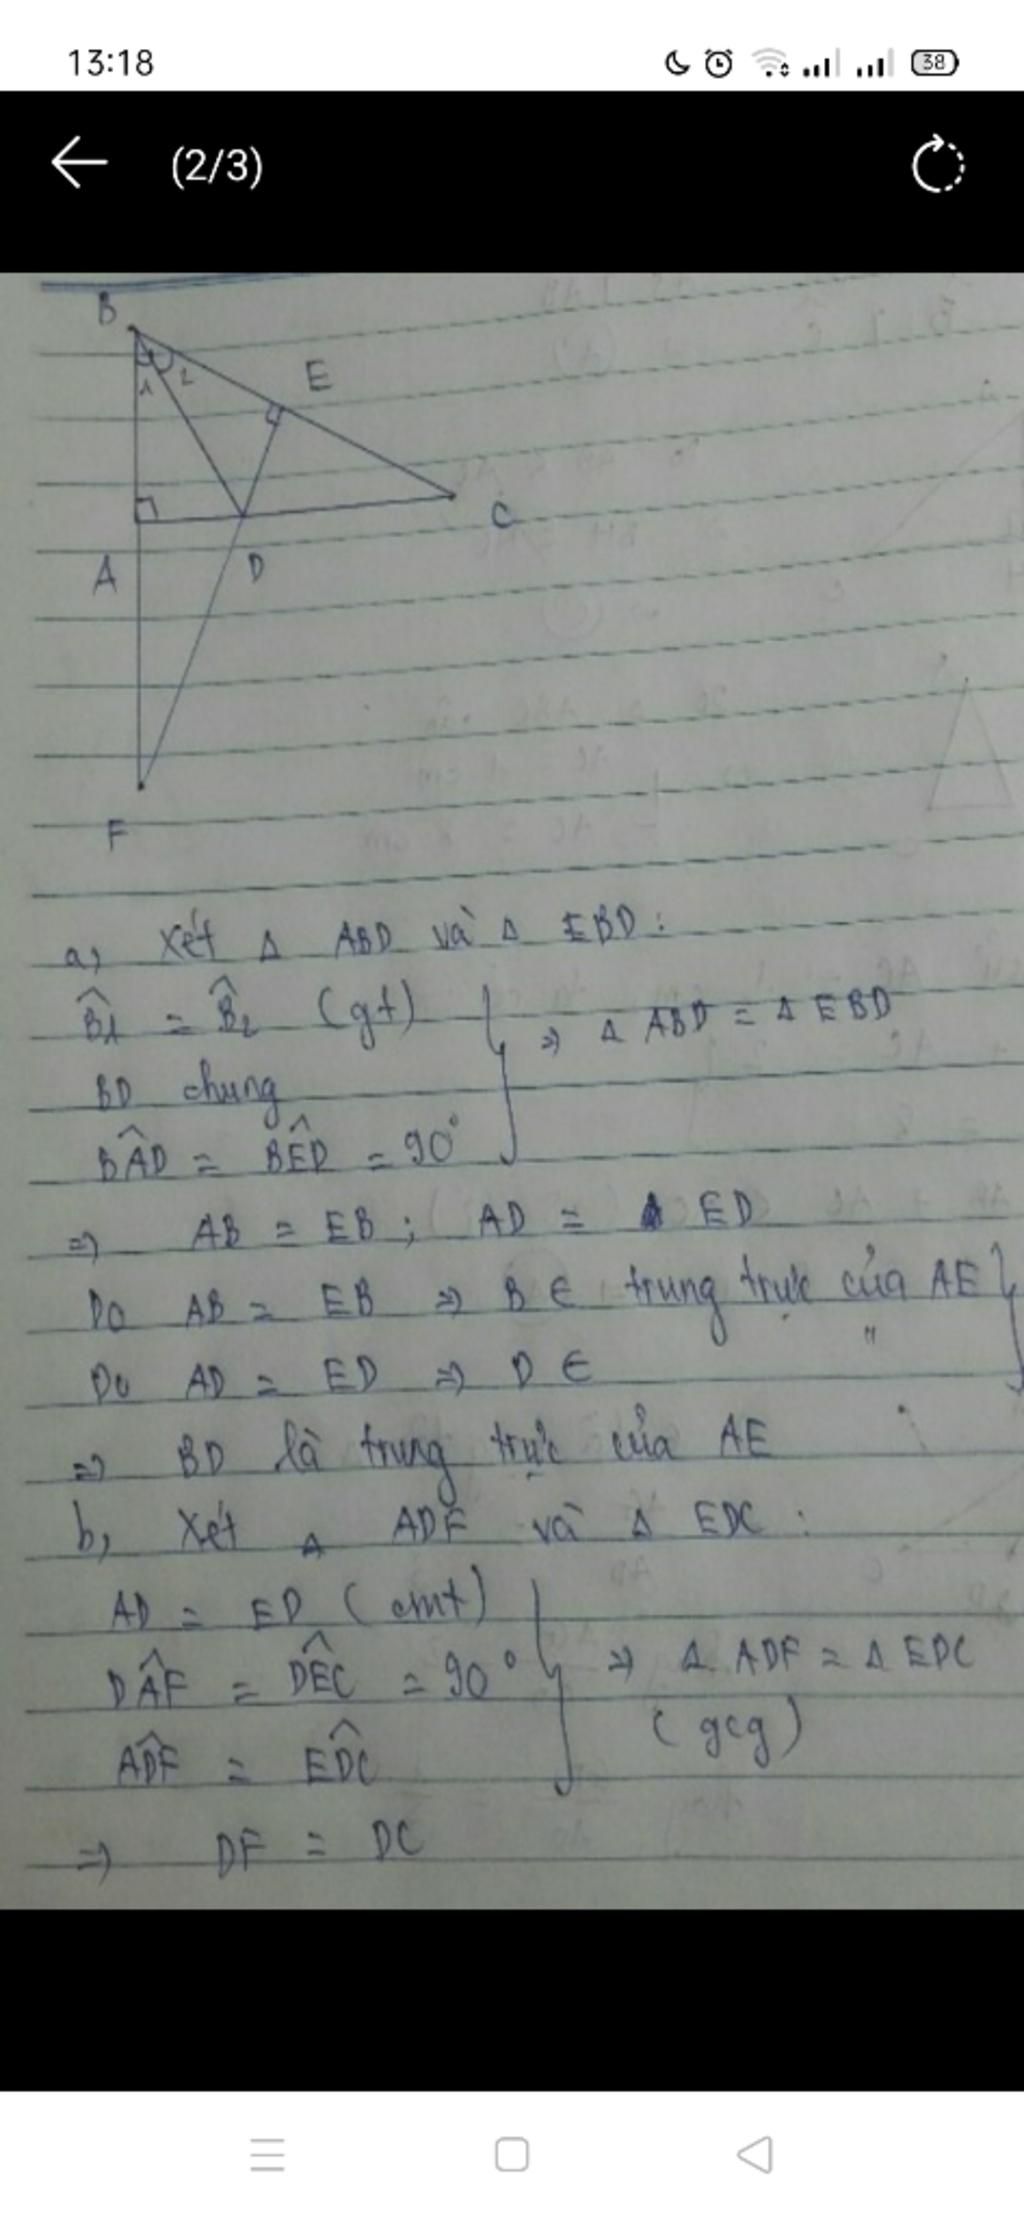 13:18
38
(2/3)
B
1 2
E
C
A
D
F
a, Xét Δ ABD và Δ EBD :
B̂1 = B̂2 (gt)
⇒ Δ ABD = Δ EBD
BD chung
BÂD = BÊD = 90°
⇒ AB = EB ; AD = ED
Do AB = EB ⇒ B ∈ trung trực của AE
Do AD = ED ⇒ D ∈ "
⇒ BD là trung trực của AE
b, Xét Δ ADF và Δ EDC :
AD = ED (cmt)
DÂF = DÊC = 90° ⇒ Δ ADF = Δ EDC
(gcg)
AD̂F = ED̂C
⇒ DF = DC